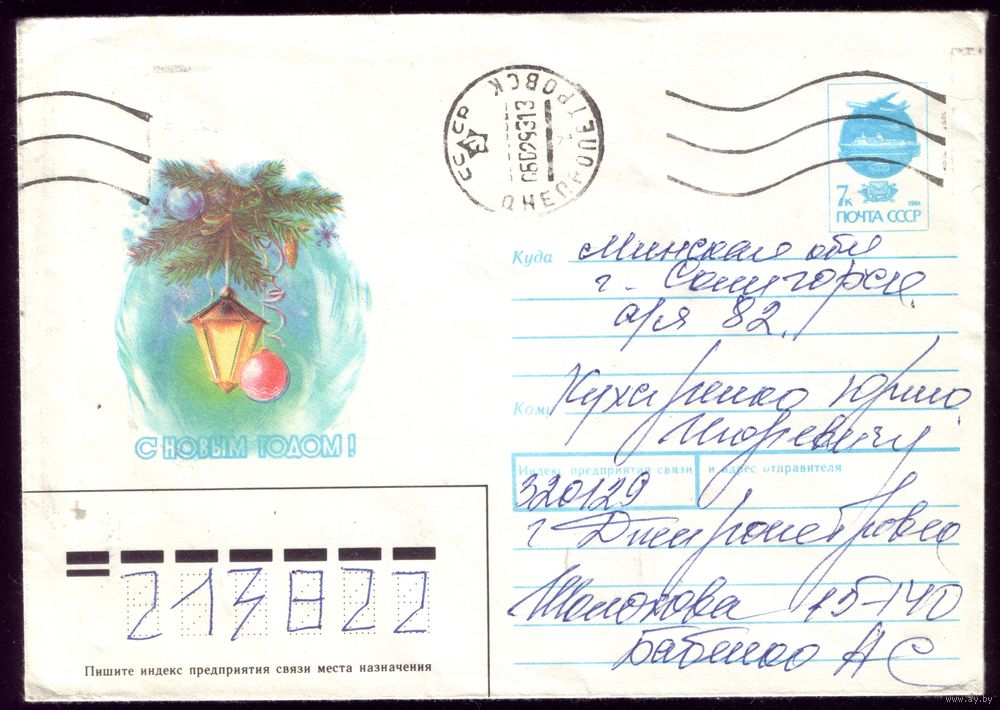 СССР ДНЕПРОПЕТРОВСК
7к 1991
ПОЧТА СССР
С НОВЫМ ГОДОМ!
Куда Минская обл
г. Солигорск
а/я 82.
Кому Кухаренко Юрию
Игоревичу
Индекс предприятия связи и адрес отправителя
320129
г Днепропетровск
Шолохова 15-140
Бабенко А С
213822
Пишите индекс предприятия связи места назначения
www.ay.by